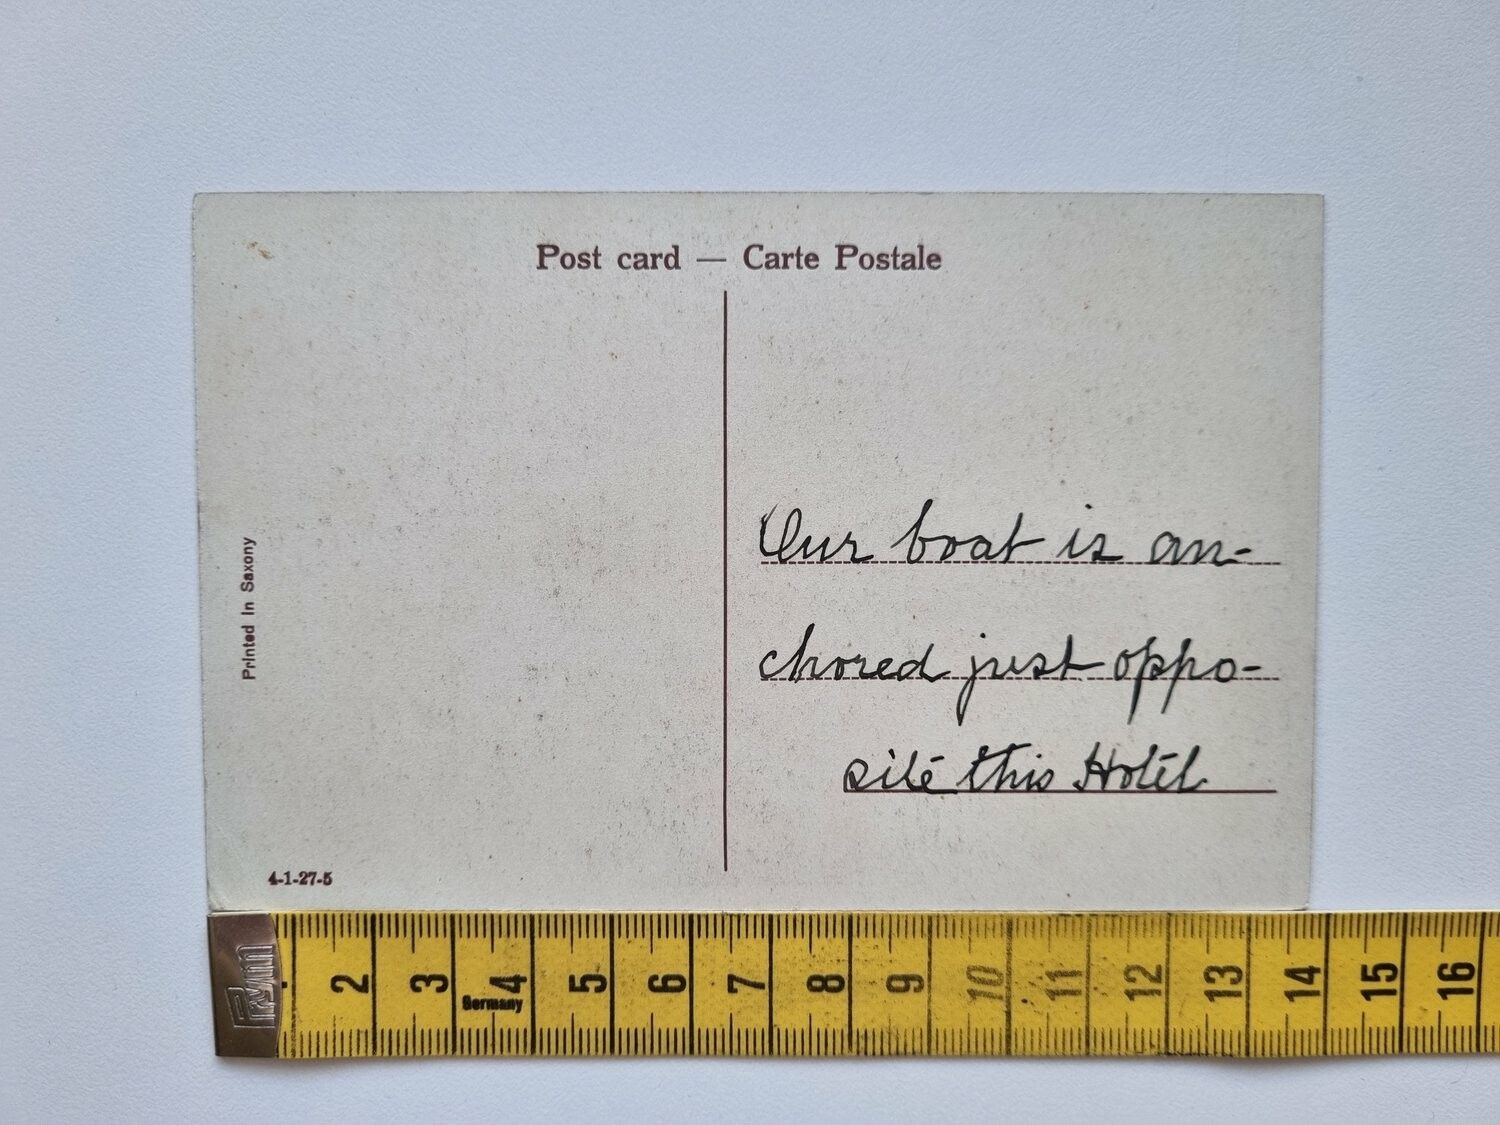 Post card — Carte Postale
Printed in Saxony
Our boat is an-
chored just oppo-
site this Hotel
4-1-27-5
Prym
2 3 4 5 6 7 8 9 10 11 12 13 14 15 16
Germany